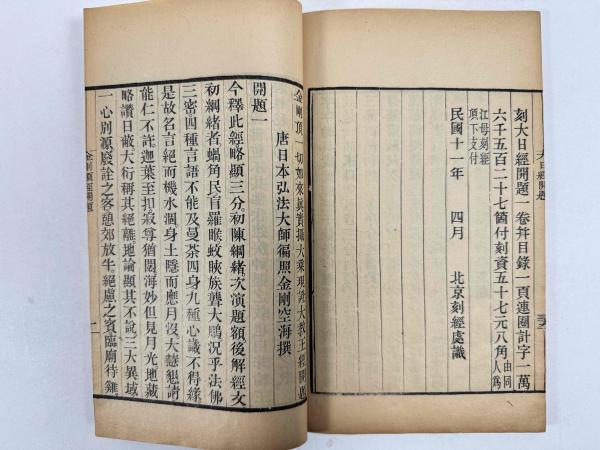 刻大日經開題一卷幷目錄一頁連圈計字一萬
六千五百二十七箇付刻資五十七元八角由同人爲
江母刻經項下支付
民國十一年　四月　北京刻經處識
大日經開題
金剛頂一切如來眞實攝大乘現證大教王經開題
唐日本弘法大師徧照金剛空海撰
開題一
今釋此經略顯三分初陳綱緒次演題額後解經文
初綱緒者蝸角民盲羅睺蚊睫族聾大鵬況乎法佛
三密四種言語不能及曼荼四身九種心識不得緣
是故名言絕而機水涸身土隱而應月沒大慧懇請
能仁不許迦葉至扣寂尊猶閟海妙但見月光地藏
略讚日嚴大衍稱其絕離地論顯其不說三大異域
一心別源廢詮之客憩郊放牛絕慮之賓臨廟待雞
金剛頂經開題
一